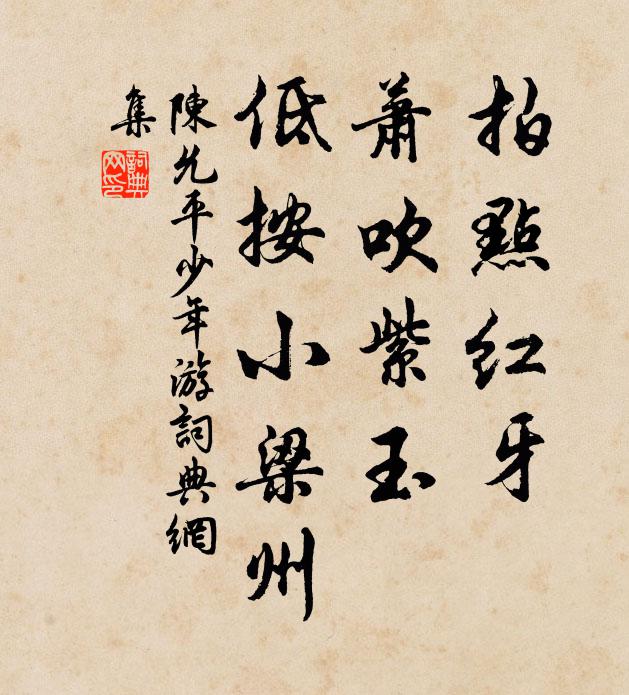 拍點紅牙
萧吹紫玉
低按小梁州
陳允平少年游詞典網
集
詞典
网印